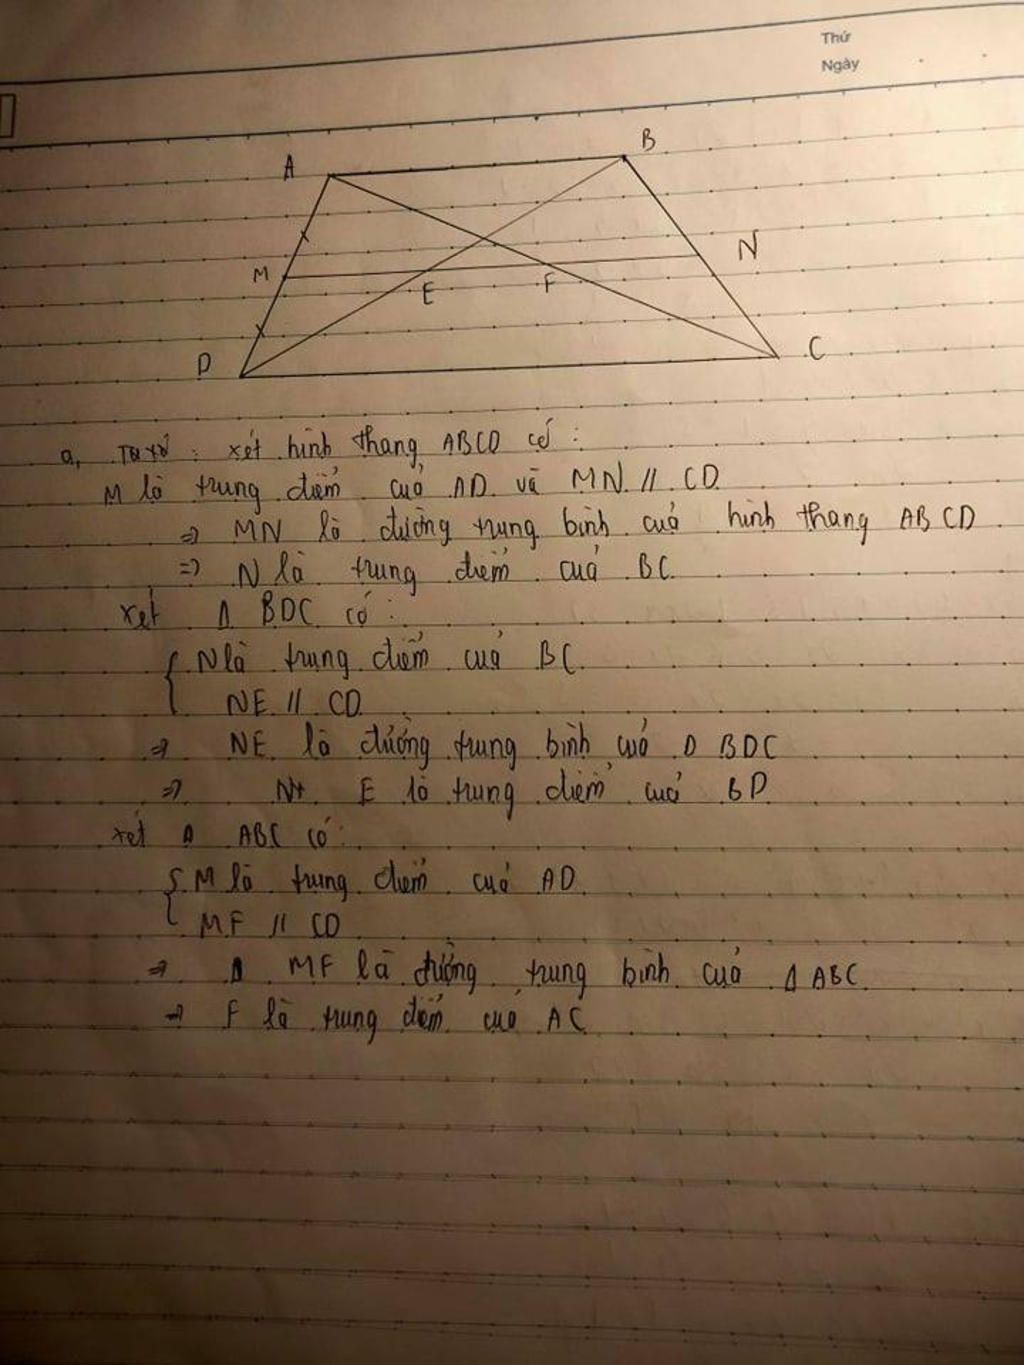 Thứ
Ngày
A
B
M
N
E
F
D
C
a, xét hình thang ABCD có :
M là trung điểm của AD và MN // CD
=> MN là đường trung bình của hình thang ABCD
=> N là trung điểm của BC
xét Δ BDC có :
{ N là trung điểm của BC
NE // CD
=> NE là đường trung bình của Δ BDC
=> E là trung điểm của BD
xét Δ ABC có :
{ M là trung điểm của AD
MF // CD
=> Δ MF là đường trung bình của Δ ABC
=> F là trung điểm của AC